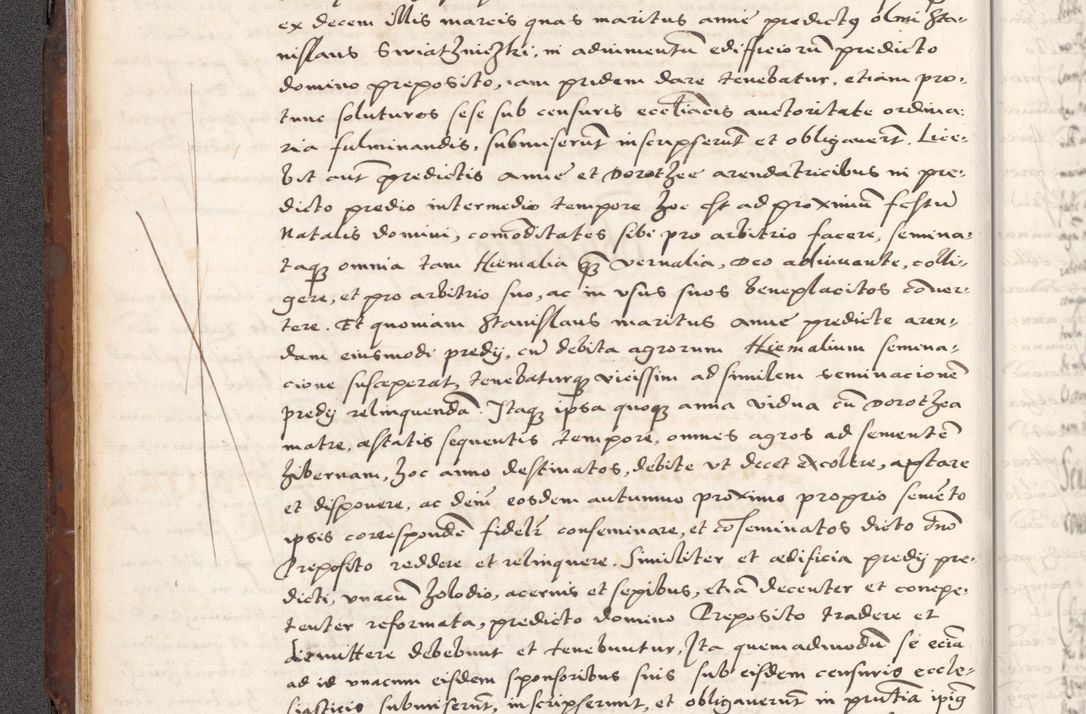 ex decem illis marcis quas maritus annę predictę olim Sta-
nislaus Swiathniczki, in adiumentū edifficiorū predicto
domino preposito, iam pridem dare tenebatur, etiam pro-
tunc soluturos sese sub censuris eccl̄iacis auctoritate ordina-
ria fulminandis, submiserūt inscripserūt et obligauerūt. Lice-
bit aut̄ predictis annę et Dorotheę arendatricibus in pre-
dicto predio intermedio tempore hoc est ad proximū festū
Natalis domini, comoditates sibi pro arbitrio facere, semina-
taqꝫ omnia tam Hiemalia qꝫ vernalia, Deo adiuuante, colli-
gere, et pro arbitrio suo, ac in vsus suos beneplacitos cōuer-
tere. Et quoniam Stanislaus maritus annę predictę aren-
dam eiusmodi predij, cū debita agrorum Hiemalium semina-
cione susceperat, tenebaturqꝫ vicissim ad similem seminacionē
predij relinquendā. Itaqꝫ ipsa quoqꝫ anna vidua cū Dorothea
matre, ęstatis sequentis tempore, omnes agros ad sementē
hibernam, hoc anno destinatos, debite vt decet excolere, aptare
et disponere, ac dein̄ eosdem autumno proximo proprio semēto
ipsis correspondēn̄ fideli͛ conseminare, et cōseminatos dicto dn̄o
Preposito reddere et relinquere. Similiter et ędificia predij pre-
dicti, vnacū holodio, acernis et sepibus, etiā decenter et conpe-
tenter reformata, predicto domino Preposito tradere et
dimittere debebunt et tenebuntur, Ita quemadmodū se eciā
ad id vnacum eisdem sponsoribus suis sub eisdem censuris eccle-
siasticis submiserūt, inscripserunt, et obligauerūt in prn̄tia ipsiꝰ